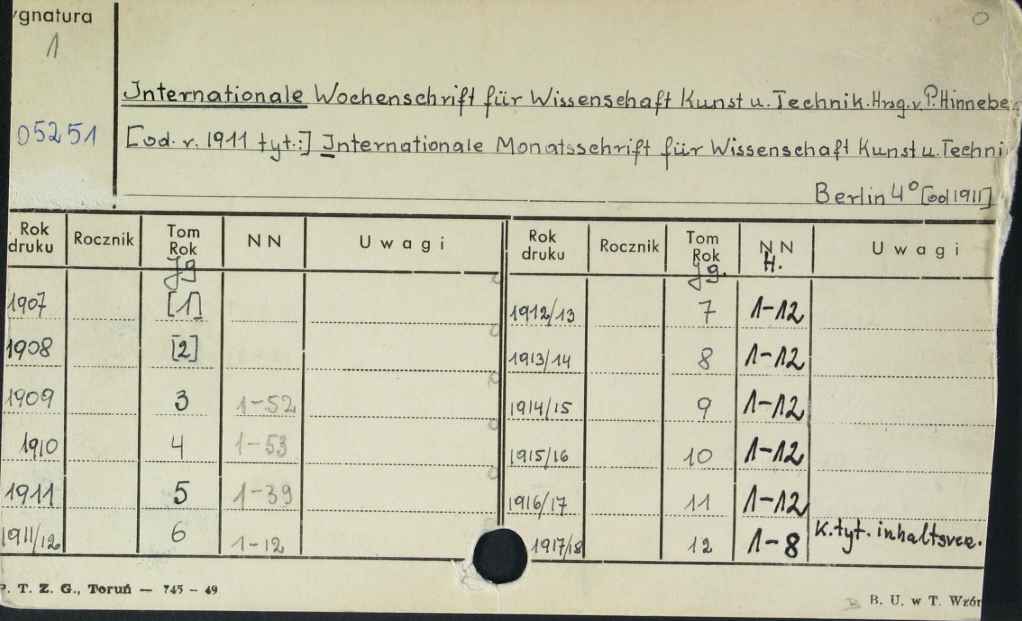 ygnatura
1
05251
Internationale Wochenschrift für Wissenschaft Kunst u. Technik. Hrsg. v. P. Hinnebe
[od. r. 1911 tyt.:] Internationale Monatsschrift für Wissenschaft Kunst u. Techni
Berlin 4° [od 1911]
Rok druku Rocznik Tom Rok Jg NN Uwagi Rok druku Rocznik Tom Rok Jg. NN H. Uwagi
1907 [1] 1912/13 7 1-12
1908 [2] 1913/14 8 1-12
1909 3 1-52 1914/15 9 1-12
1910 4 1-53 1915/16 10 1-12
1911 5 1-39 1916/17 11 1-12
1911/12 6 1-12 1917/18 12 1-8 K. tyt. inhaltsvee.
P. T. Z. G., Toruń — 745 - 49
B. U. w T. Wzór